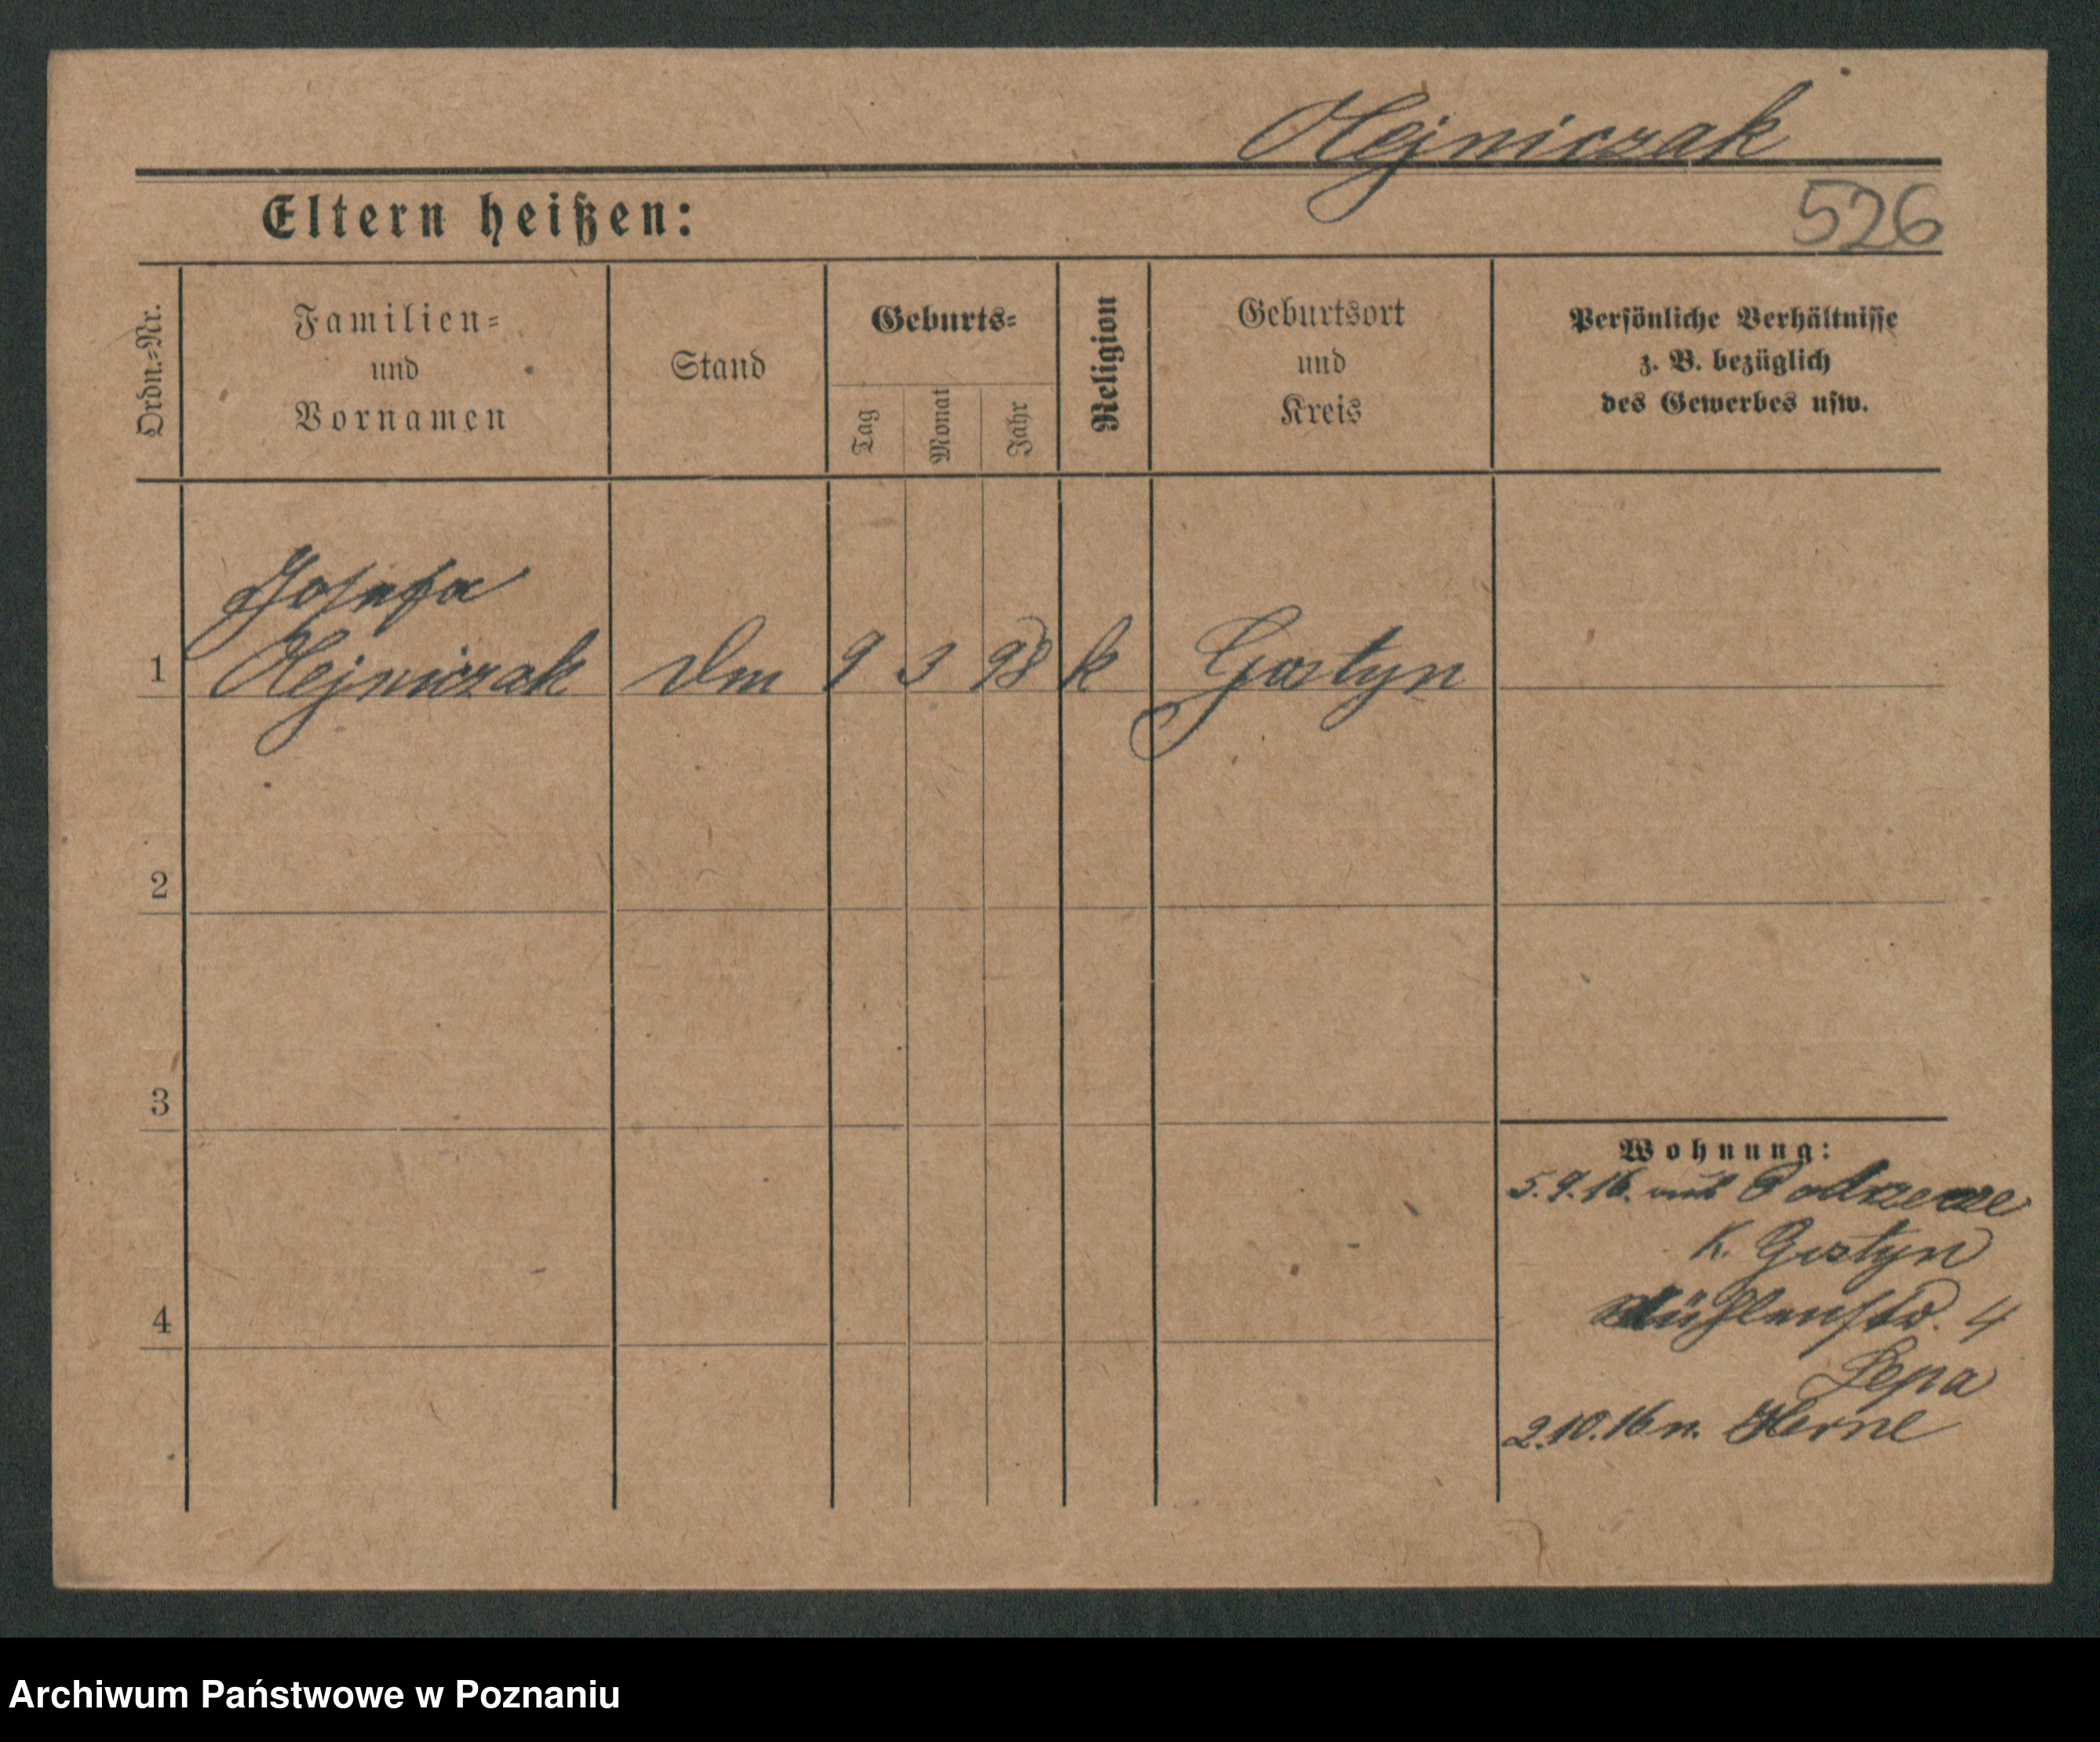 Olejniczak
Eltern heißen:
526
Ordn.-Nr.
Familien-
und
Vornamen
Stand
Geburts-
Tag
Monat
Jahr
Religion
Geburtsort
und
Kreis
Persönliche Verhältnisse
z. B. bezüglich
des Gewerbes usw.
Josefa
1 Olejniczak Dm 9 3 98 k Gostyn
2
3
4
Wohnung:
5.9.16. aus
K. Gostyn
Mühlenstr. 4
Lepa
2.10.16 n. Herne
Archiwum Państwowe w Poznaniu